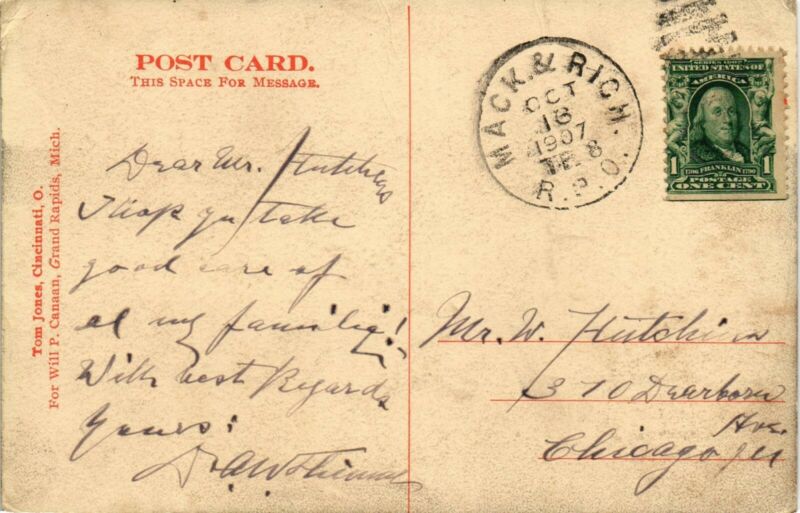 POST CARD.
THIS SPACE FOR MESSAGE.
Tom Jones, Cincinnati, O.
For Will P. Canaan, Grand Rapids, Mich.
Dear Mr. Hutchins
I hop you take
good care of
al my familig!
With best Regards
Yours:
MACK. & RICH.
OCT
18
1907
R.P.O.
SERIES 1902
UNITED STATES OF
AMERICA
1706 FRANKLIN 1790
1 1
POSTAGE
ONE CENT
Mr. W. Hutchins
370 Dearborn
Ave.
Chicago Ill